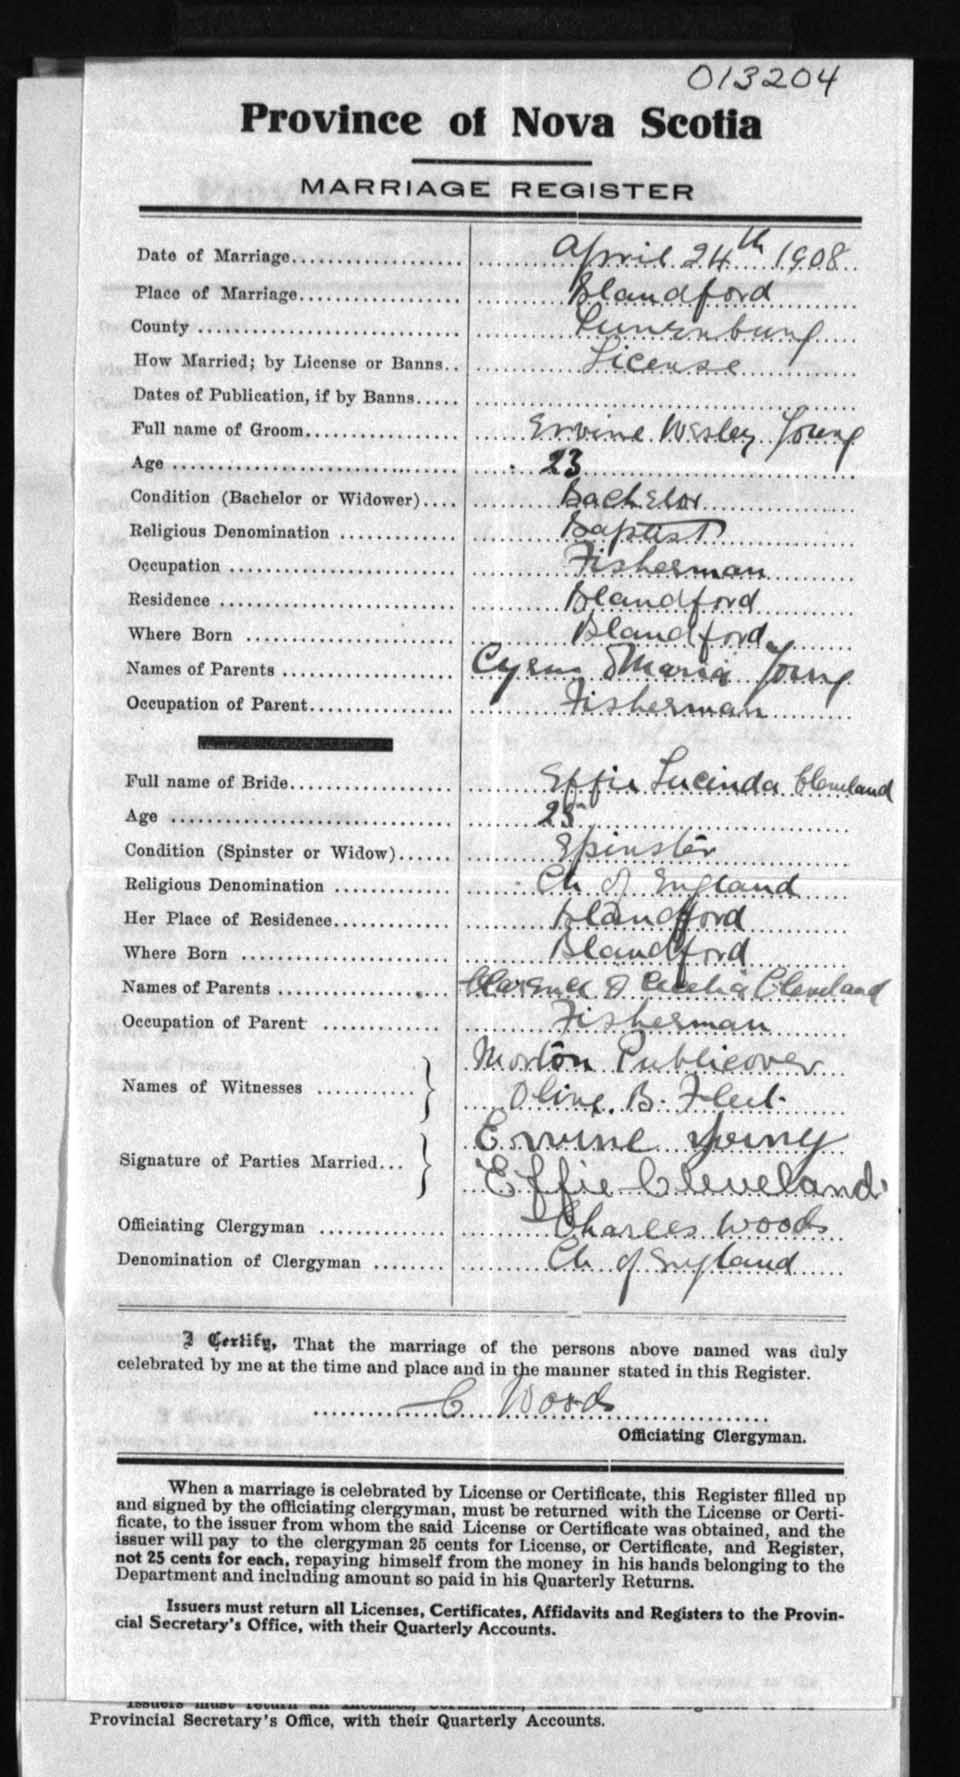 013204
Province of Nova Scotia
MARRIAGE REGISTER
Date of Marriage................... April 24th 1908
Place of Marriage................... Blandford
County ................... Lunenburg
How Married; by License or Banns.. License
Dates of Publication, if by Banns.....
Full name of Groom................... Ervine Wesley Young
Age ................... 23
Condition (Bachelor or Widower).... Bachelor
Religious Denomination ............ Baptist
Occupation ................... Fisherman
Residence ................... Blandford
Where Born ................... Blandford
Names of Parents ................... Cyrus & Maria Young
Occupation of Parent................ Fisherman
Full name of Bride................... Effie Lucinda Cleveland
Age ................... 25
Condition (Spinster or Widow)...... Spinster
Religious Denomination ............ Ch of England
Her Place of Residence............ Blandford
Where Born ................... Blandford
Names of Parents ................... Clarence & Cecelia Cleveland
Occupation of Parent ............. Fisherman
Morton Publicover
Names of Witnesses ...........
Olive. B. Fleet.
Ervine Young
Signature of Parties Married...
Effie Cleveland
Officiating Clergyman ............. Charles Woods
Denomination of Clergyman ........ Ch of England
I Certify, That the marriage of the persons above named was duly
celebrated by me at the time and place and in the manner stated in this Register.
C Woods
Officiating Clergyman.
When a marriage is celebrated by License or Certificate, this Register filled up
and signed by the officiating clergyman, must be returned with the License or Certi-
ficate, to the issuer from whom the said License or Certificate was obtained, and the
issuer will pay to the clergyman 25 cents for License, or Certificate, and Register,
not 25 cents for each, repaying himself from the money in his hands belonging to the
Department and including amount so paid in his Quarterly Returns.
Issuers must return all Licenses, Certificates, Affidavits and Registers to the Provin-
cial Secretary's Office, with their Quarterly Accounts.
Provincial Secretary's Office, with their Quarterly Accounts.